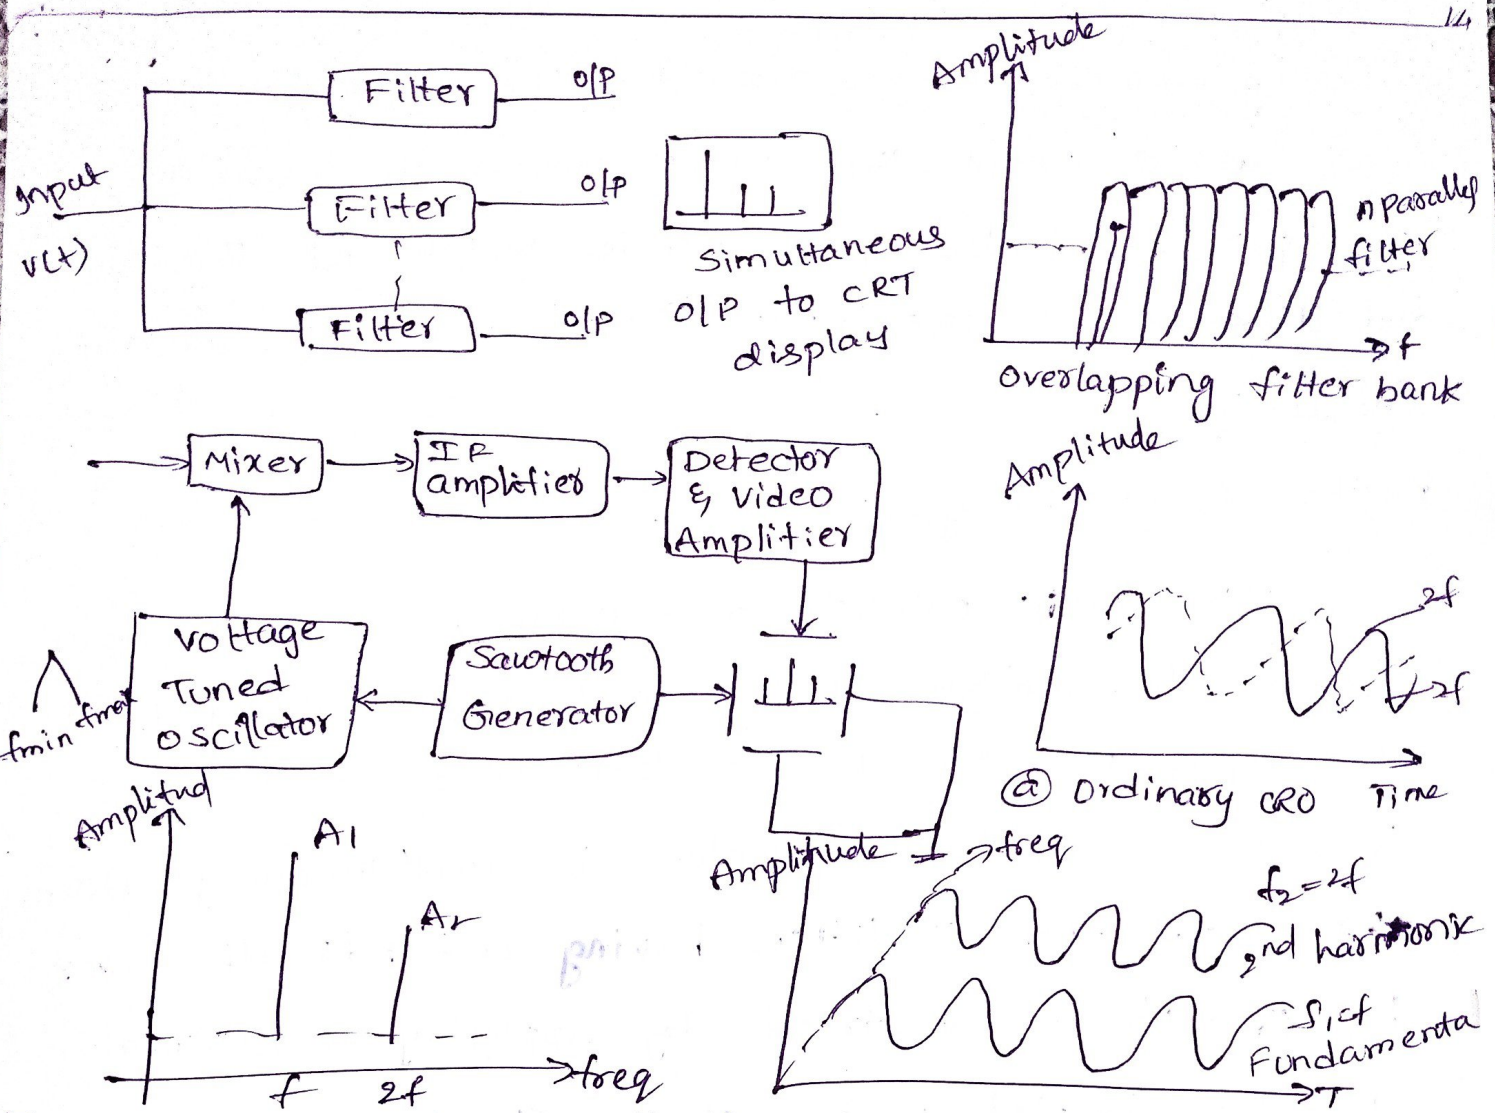 14
Filter
O/P
Input
Filter
O/P
v(t)
Filter
O/P
Simultaneous
O/P to CRT
display
Amplitude
n parally
filter
f
Overlapping filter bank
Mixer
IF
amplifier
Detector
& Video
Amplifier
Voltage
Tuned
oscillator
fmin
Sawtooth
Generator
Amplitude
2f
2f
ⓐ Ordinary CRO
Time
Amplitud
A1
A2
f
2f
freq
Amplitude
freq
f2=2f
2nd harmonic
Fundamenta
T